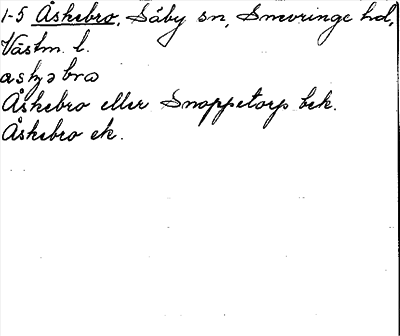 1-5 Åskebro, Säby sn, Snevringe hd,
Västm. l.
Åskebro eller Snoppetorp bek.
Åskebro ek.